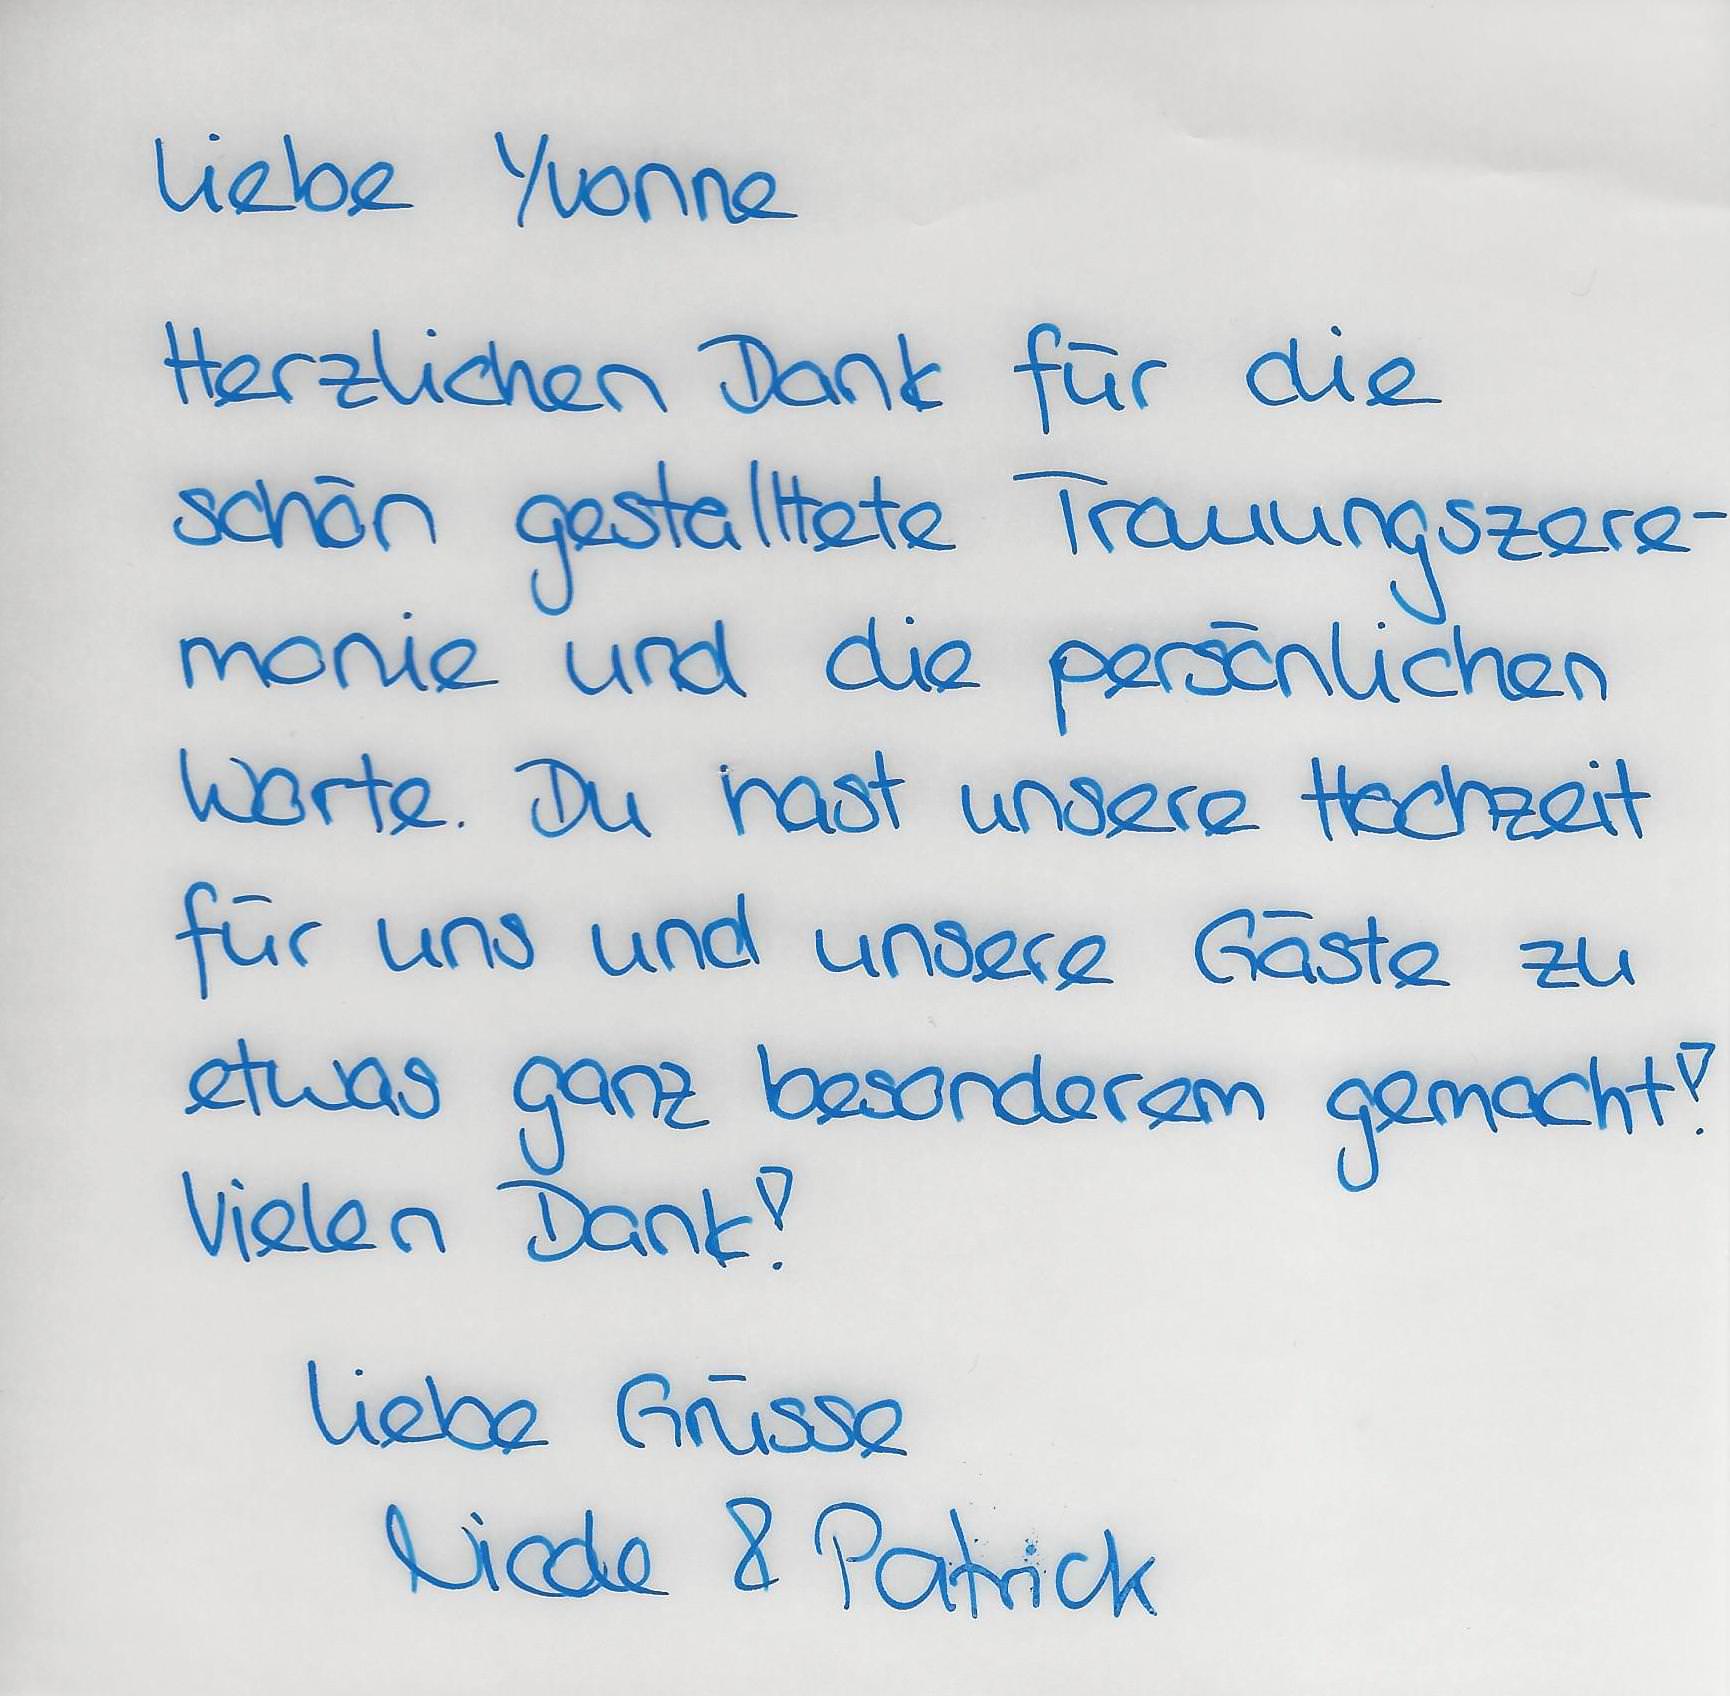 Liebe Yvonne
Herzlichen Dank für die
schön gestalltete Trauungszere-
monie und die persönlichen
Worte. Du hast unsere Hochzeit
für uns und unsere Gäste zu
etwas ganz besonderem gemacht!
Vielen Dank!
Liebe Grüsse
Nicole & Patrick